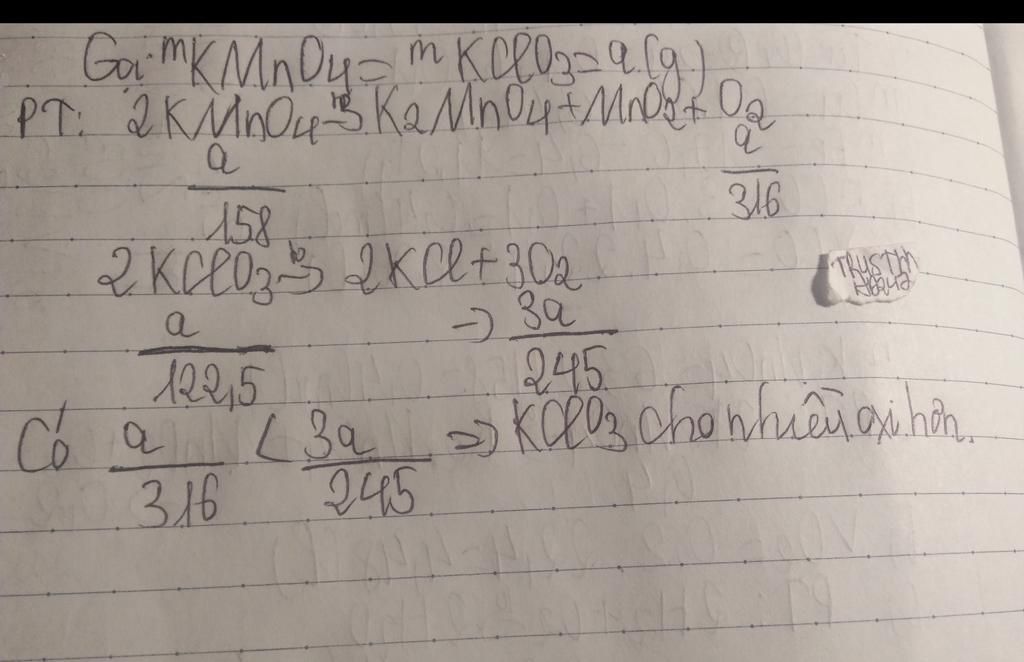 Gọi mKMnO4 = mKClO3 = a(g)
PT: 2KMnO4 -to-> K2MnO4 + MnO2 + O2
a/158 a/316
2KClO3 -to-> 2KCl + 3O2
a/122,5 -> 3a/245
Có a/316 < 3a/245 => KClO3 cho nhiều oxi hơn.